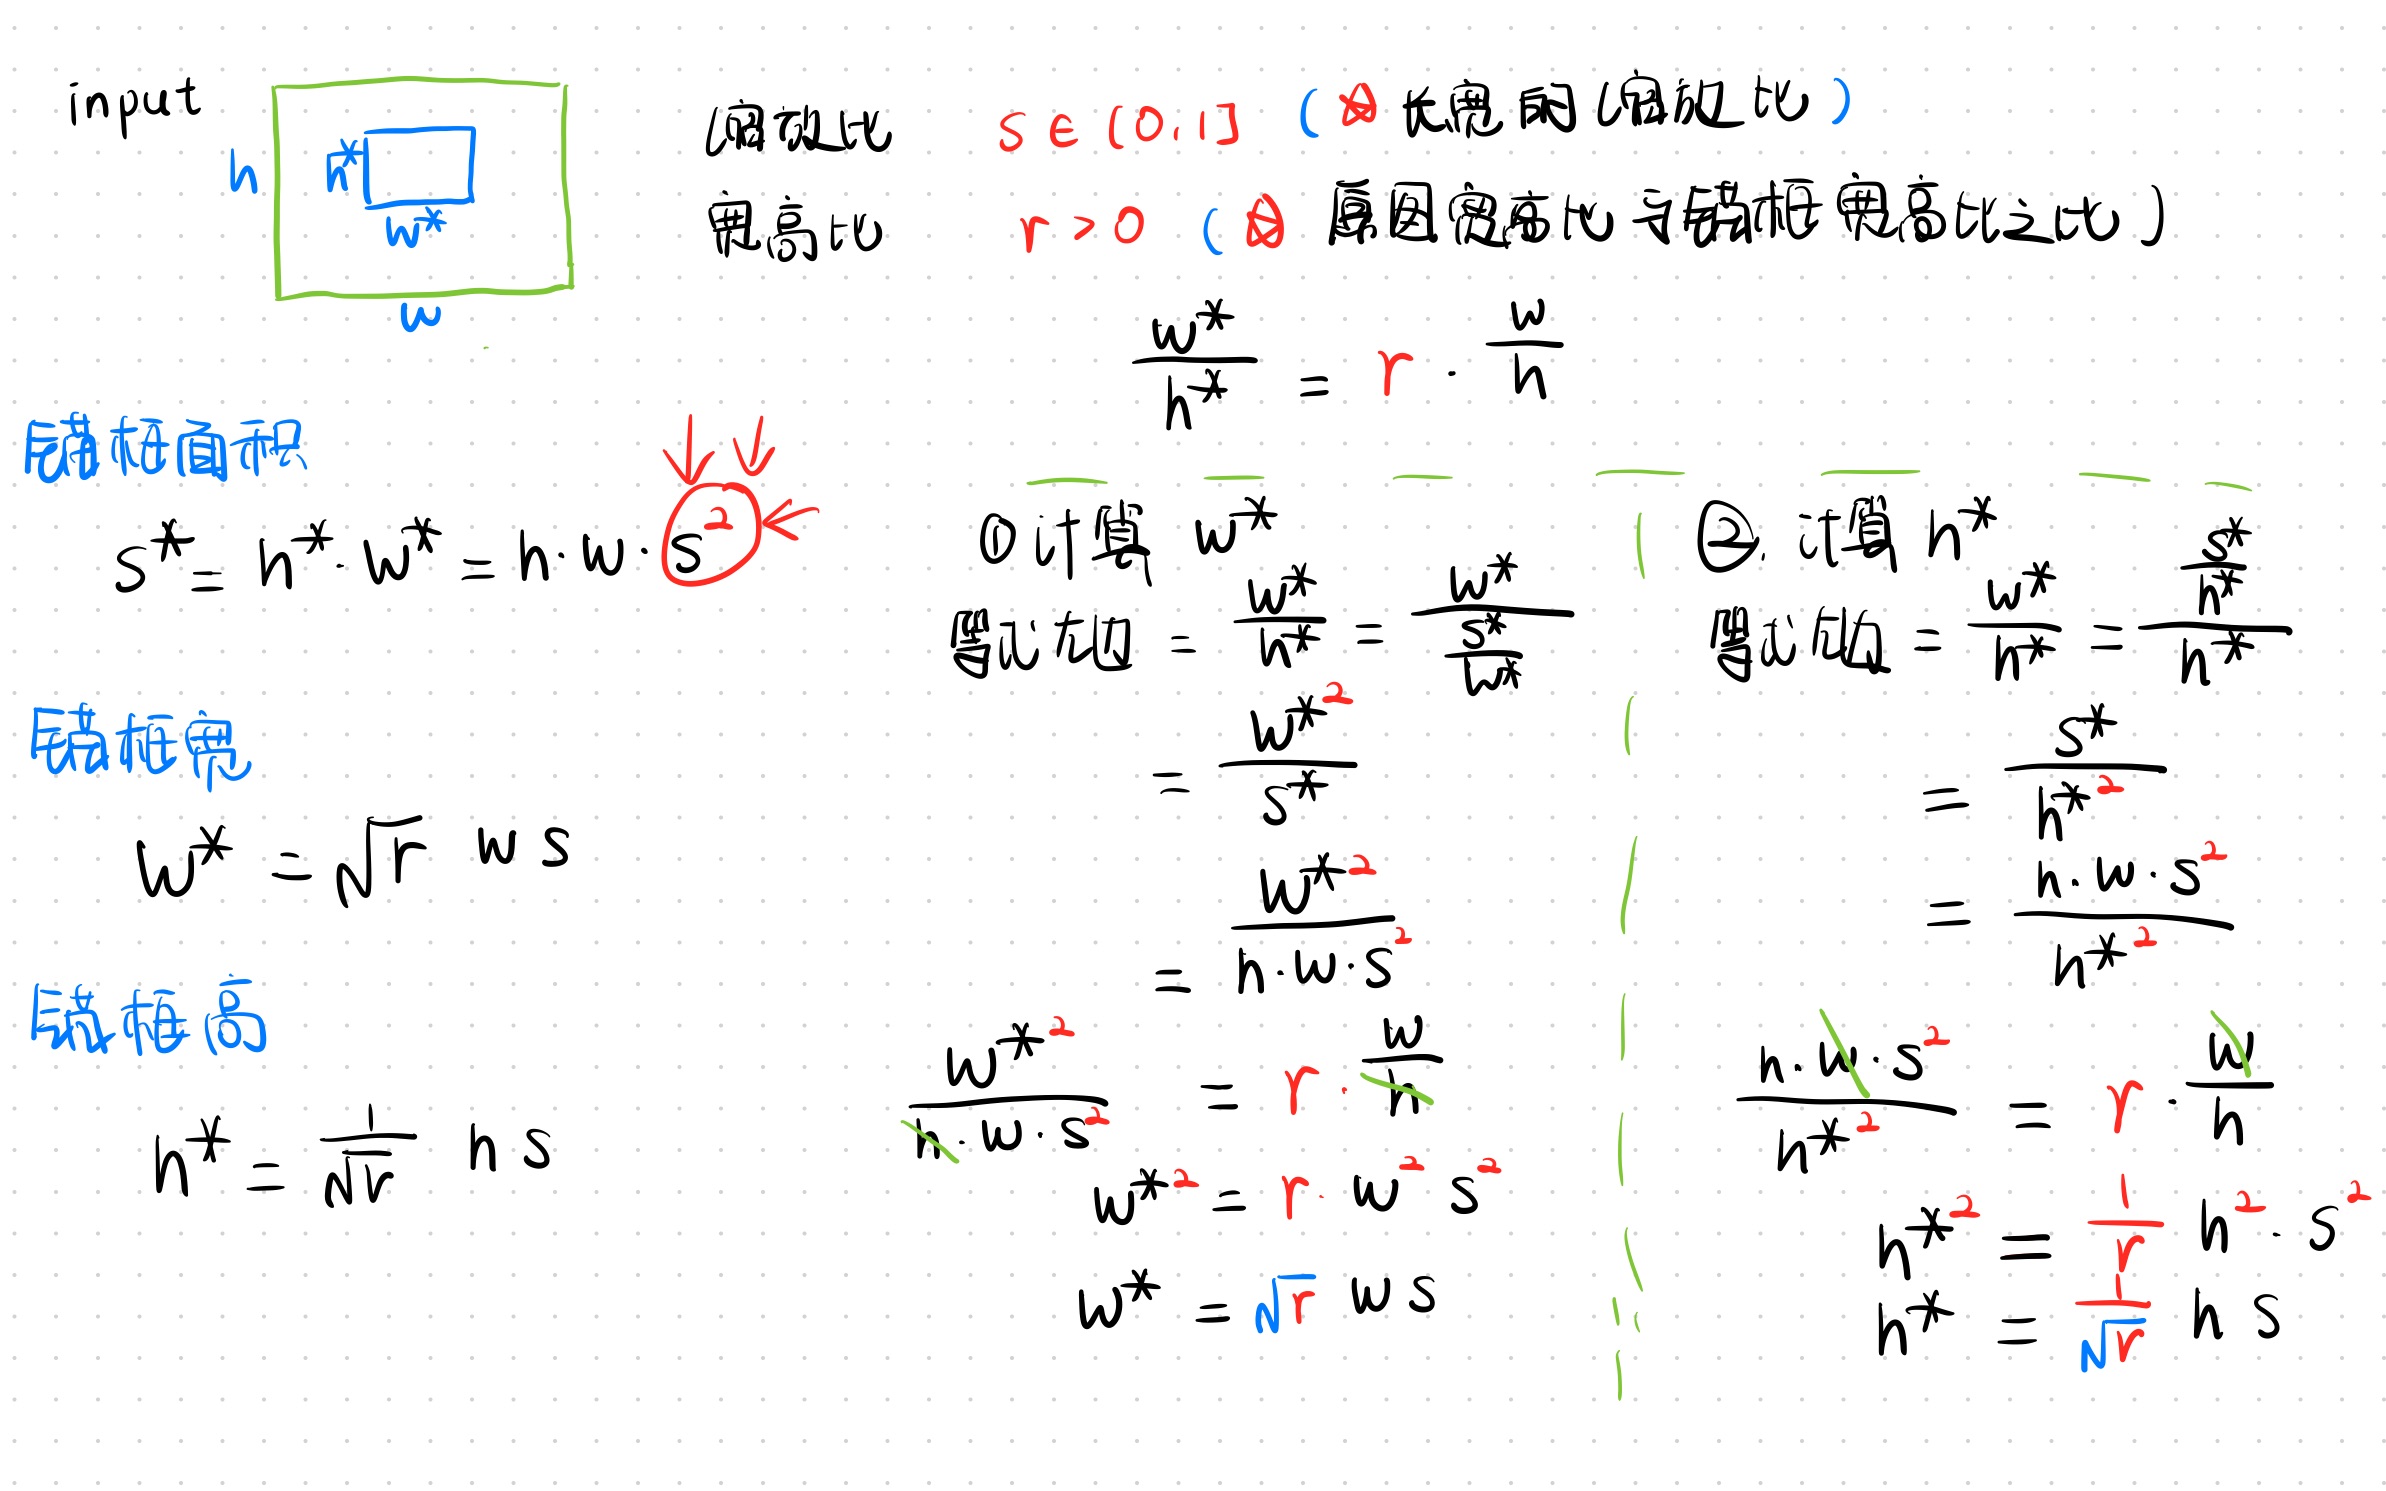 input
h
h*
w*
w
缩放比 s ∈ (0,1] (长宽的缩放比)
宽高比 r > 0 (原图宽高比与锚框宽高比之比)
w*/h* = r · w/h
锚框面积
s* = h* · w* = h · w · s²
锚框宽
w* = √r w s
锚框高
h* = 1/√r h s
① 计算 w*
等式左边 = w*/h* = w*/(s*/w*)
= w*²/s*
= w*²/(h·w·s²)
w*²/(h·w·s²) = r · w/h
w*² = r · w² s²
w* = √r w s
②. 计算 h*
等式左边 = w*/h* = (s*/h*)/h*
= s*/h*²
= h·w·s²/h*²
h·w·s²/h*² = r · w/h
h*² = 1/r h² · s²
h* = 1/√r h s